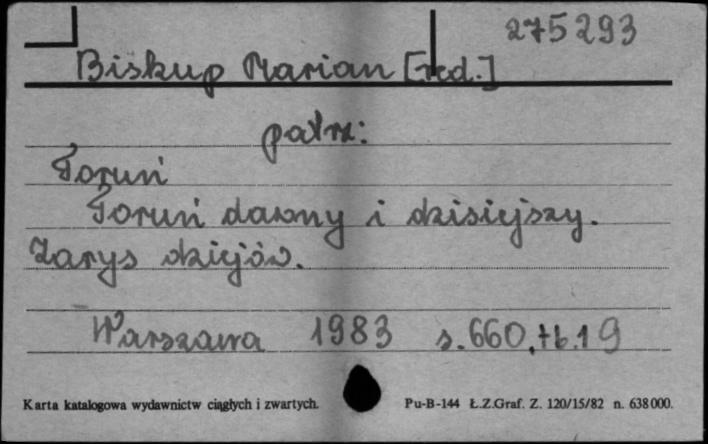 275293
Biskup Marian [red.]
patrz:
Toruń
Toruń dawny i dzisiejszy.
Zarys dziejów.
Warszawa 1983 s. 660, tb. 19
Karta katalogowa wydawnictw ciągłych i zwartych. Pu-B-144 Ł.Z.Graf. Z. 120/15/82 n. 638000.